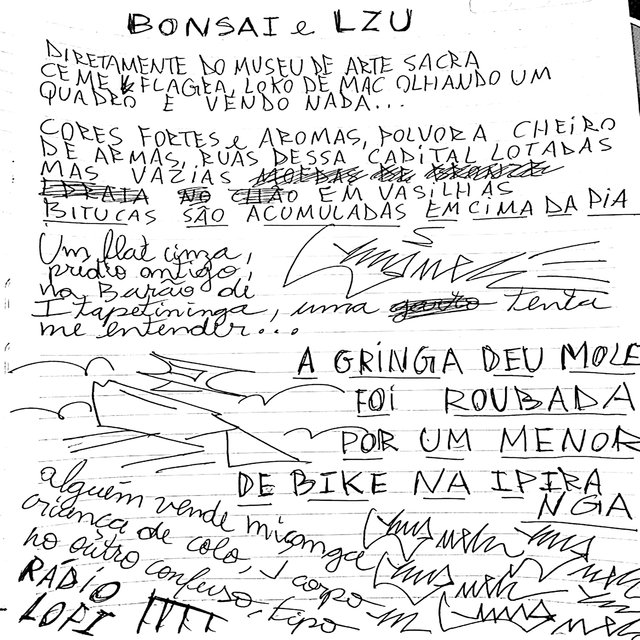 BONSAI e LZU
DIRETAMENTE DO MUSEU DE ARTE SACRA
CE ME FLAGRA, LOKO DE MAC OLHANDO UM
QUADRO E VENDO NADA...
CORES FORTES e AROMAS, POLVORA CHEIRO
DE ARMAS, RUAS DESSA CAPITAL LOTADAS
MAS VAZIAS MOEDAS DE BRONZE
NO CHÃO EM VASILHAS
BITUCAS SÃO ACUMULADAS EM CIMA DA PIA
Um flat cinza,
prédio antigo,
na Barão de
Itapetininga, uma tenta
me entender...
A GRINGA DEU MOLE
FOI ROUBADA
POR UM MENOR
DE BIKE NA IPIRA
NGA
alguém vende miçanga
criança de colo, 1 corpo
no outro confuso, tipo
RÁDIO
LOPI